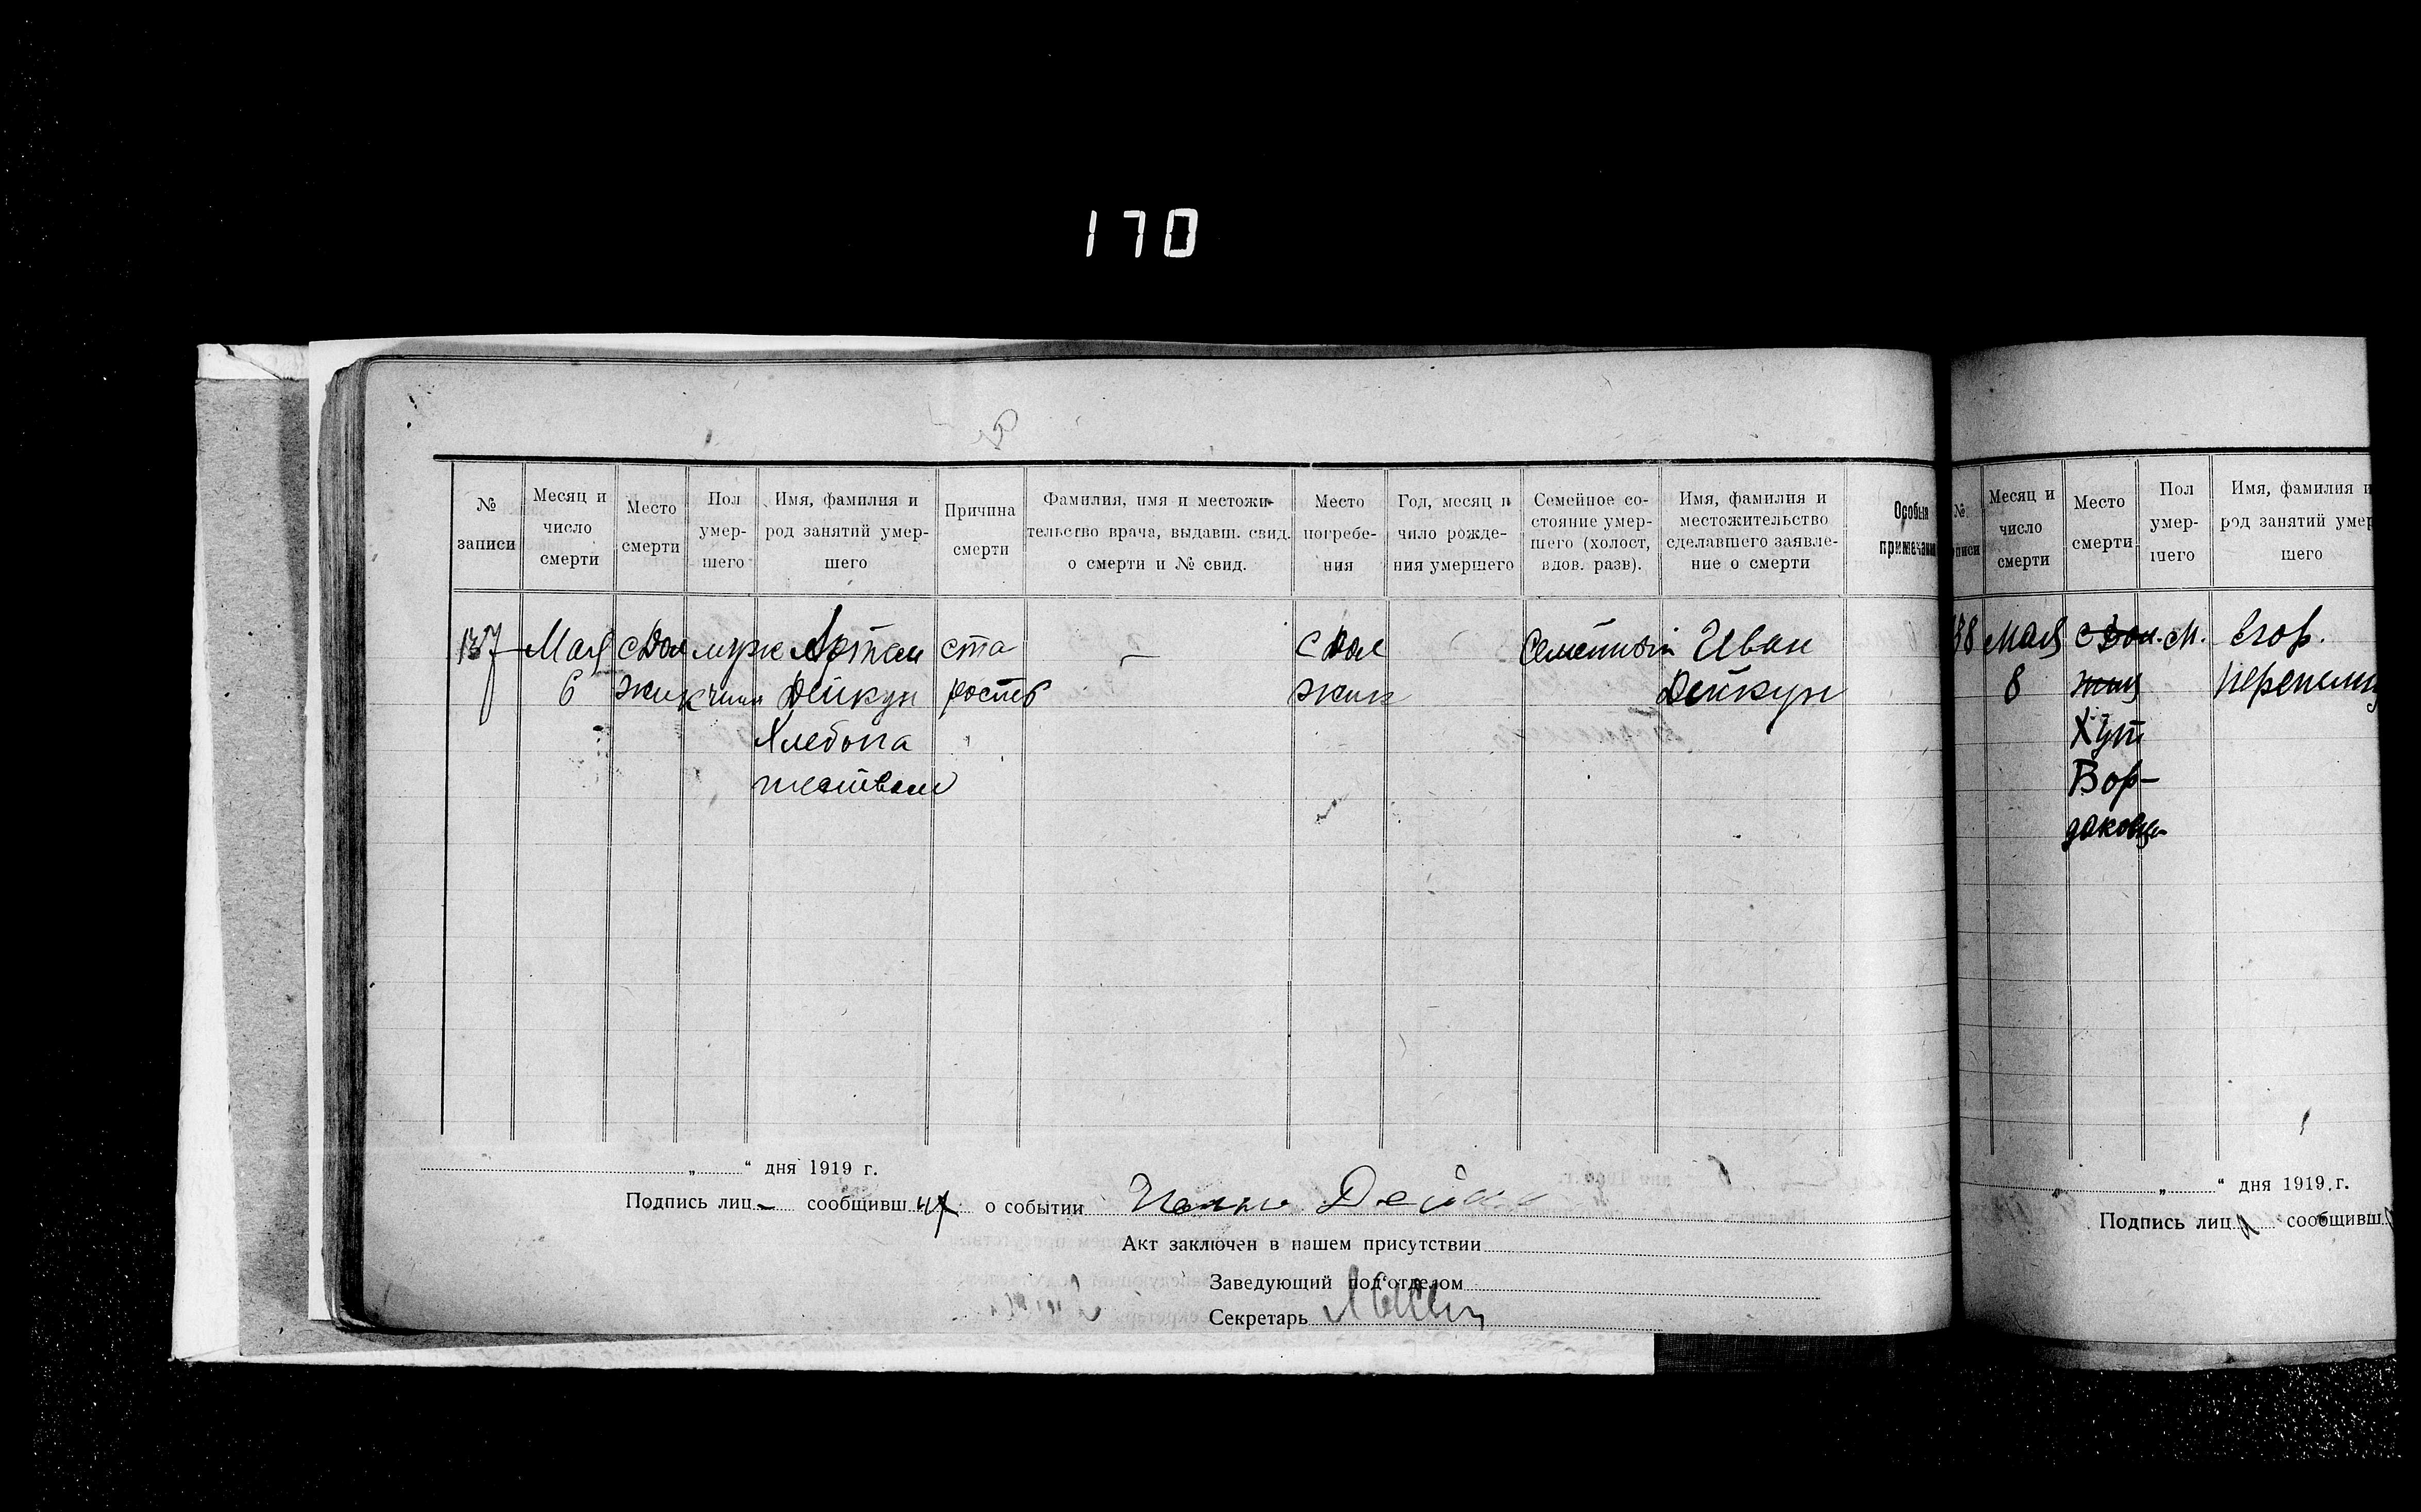 170
№ записи
Месяц и число смерти
Место смерти
Пол умер- шего
Имя, фамилия и род занятий умер- шего
Причина смерти
Фамилия, имя и местожи- тельство врача, выдавш. свид. о смерти и № свид.
Место погребе- ния
Год, месяц и чило рожде- ния умершего
Семейное со- стояние умер- шего (холост, вдов. разв).
Имя, фамилия и местожительство сделавшего заявле- ние о смерти
Особыя примечания
137
Мая
6
с Дол
жик
муж
чина
Артем
Дейкун
Хлебопа
шеством
ста
рость
—
с Дол
жик
Семейный
Иван
Дейкун
„ “ дня 1919 г.
Подпись лиц сообщивш о событии Дейк
Акт заключен в нашем присутствии
Заведующий под‘отделом
Секретарь
Месяц и число смерти
Место смерти
Пол умер- шего
Имя, фамилия и род занятий умер шего
38
Мая
8
с Дол.
Хут
Вор-
М.
Егор.
„ “ дня 1919 г.
Подпись лиц сообщивш